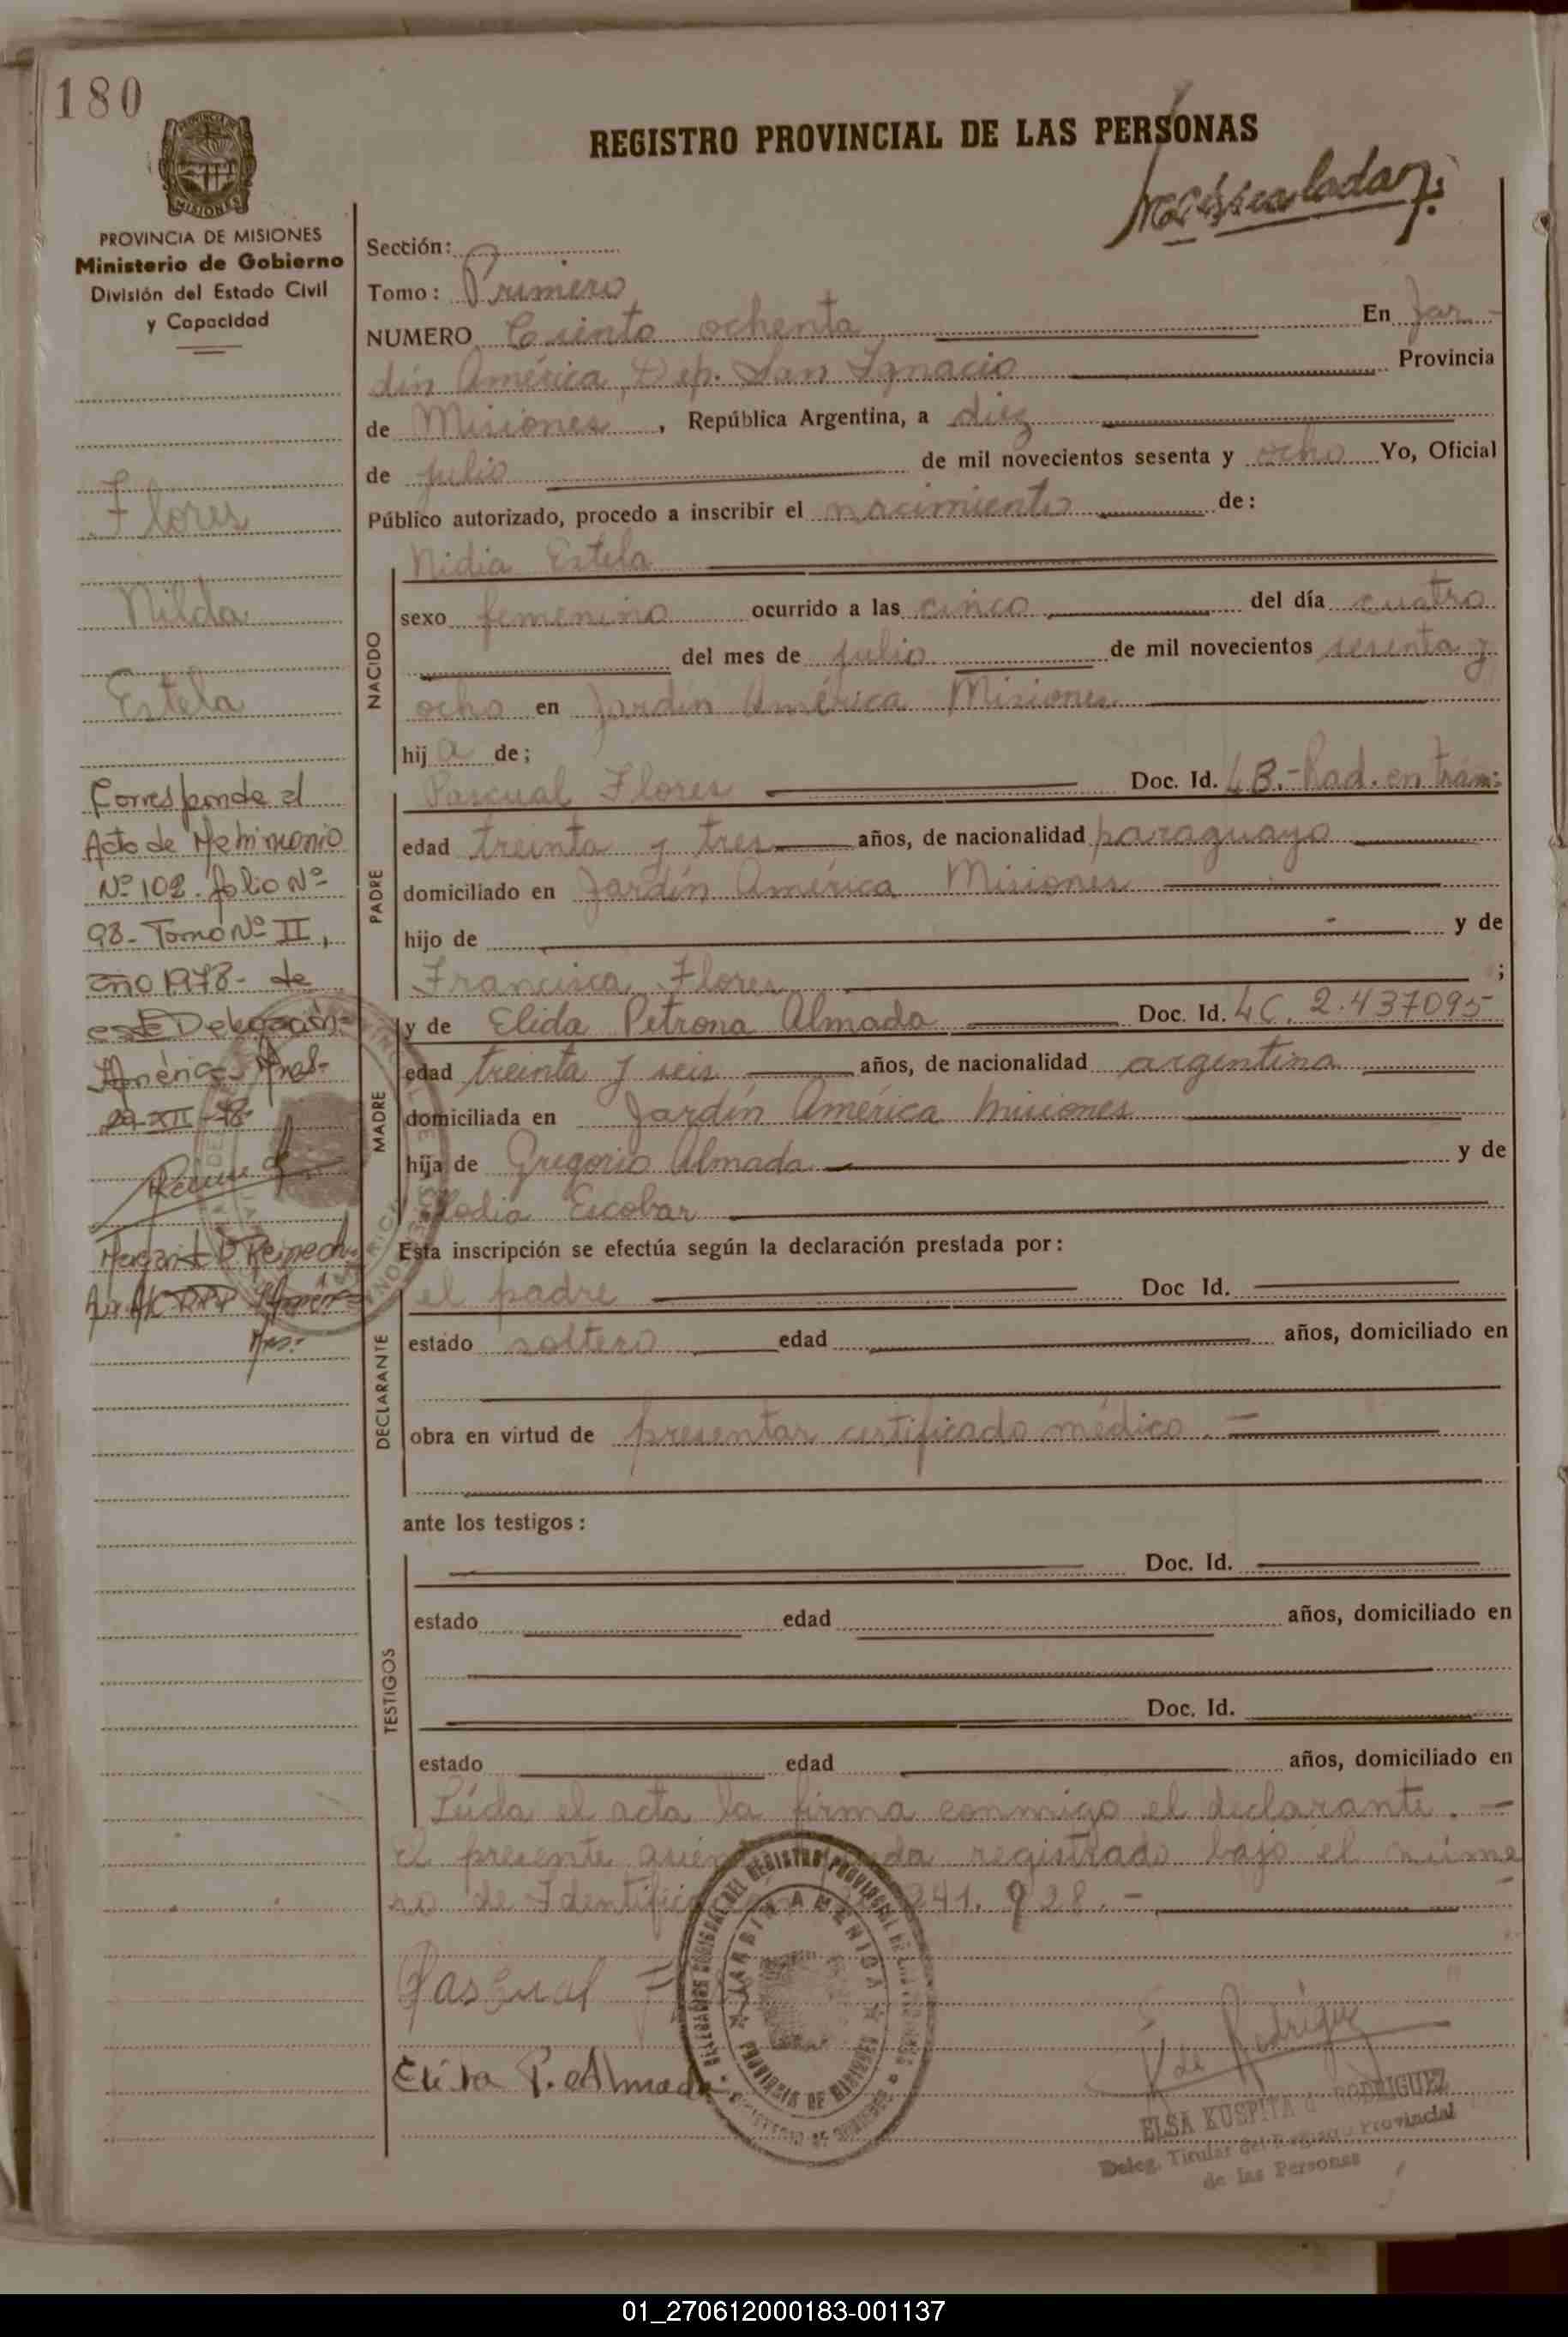 180
REGISTRO PROVINCIAL DE LAS PERSONAS
PROVINCIA DE MISIONES
Ministerio de Gobierno
División del Estado Civil
y Capacidad
Flores
Nilda
Estela
Corresponde al
Acto de Matrimonio
Nº 102. folio Nº
98- Tomo Nº II,
año 1978- de
este Delegación-
América- Mnes-
29-XII-78-
Sección:
Tomo: Primero
NUMERO Ciento ochenta En Jar-
dín América, Dep. San Ignacio Provincia
de Misiones, República Argentina, a diez
de julio de mil novecientos sesenta y ocho Yo, Oficial
Público autorizado, procedo a inscribir el nacimiento de:
NACIDO
Nidia Estela
sexo femenino ocurrido a las cinco del día cuatro
del mes de julio de mil novecientos sesenta y
ocho en Jardín América Misiones
hija de;
PADRE
Pascual Flores Doc. Id. Rad. en trám:
edad treinta y tres años, de nacionalidad paraguayo
domiciliado en Jardín América Misiones
hijo de y de
Francisca Flores ;
MADRE
y de Elida Petrona Almada Doc. Id. LC. 2.437095
edad treinta y seis años, de nacionalidad argentina
domiciliada en Jardín América Misiones
hija de Gregorio Almada y de
Escobar
Esta inscripción se efectúa según la declaración prestada por:
DECLARANTE
el padre Doc Id.
estado soltero edad años, domiciliado en
obra en virtud de presentar certificado médico.-
ante los testigos:
TESTIGOS
Doc. Id.
estado edad años, domiciliado en
Doc. Id.
estado edad años, domiciliado en
Leída el acta la firma conmigo el declarante.-
el presente registrado bajo el núme
ro de 241.928.-
Pascual
Elida P. Almada
JARDIN AMERICA
PROVINCIA DE MISIONES
de Rodríguez
ELSA KUSPITA d RODRIGUEZ
Deleg. Titular del Registro Provincial
de las Personas
01_270612000183-001137